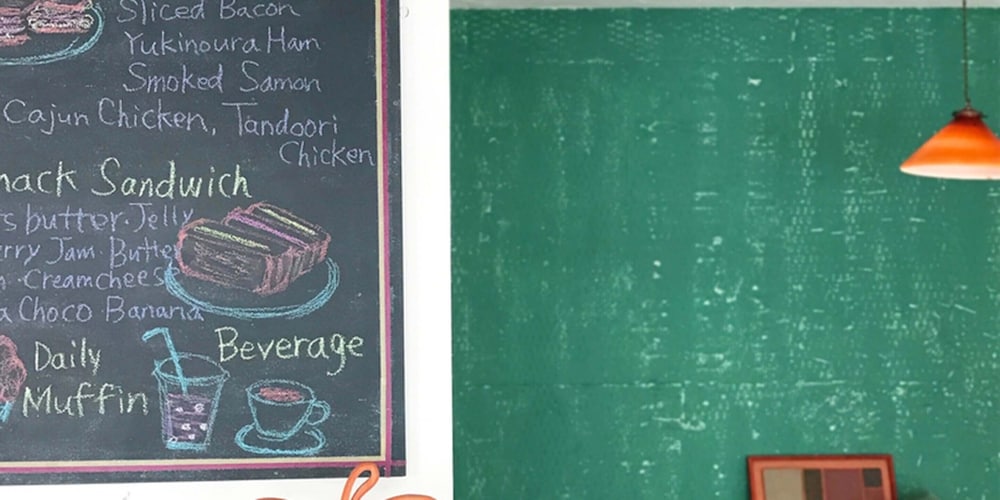 Sliced Bacon
Yukinoura Ham
Smoked Samon
Cajun Chicken, Tandoori
Chicken
Sandwich
butter. Jelly
Jam. Butte
Creamchees
Choco Banana
Daily
Muffin
Beverage